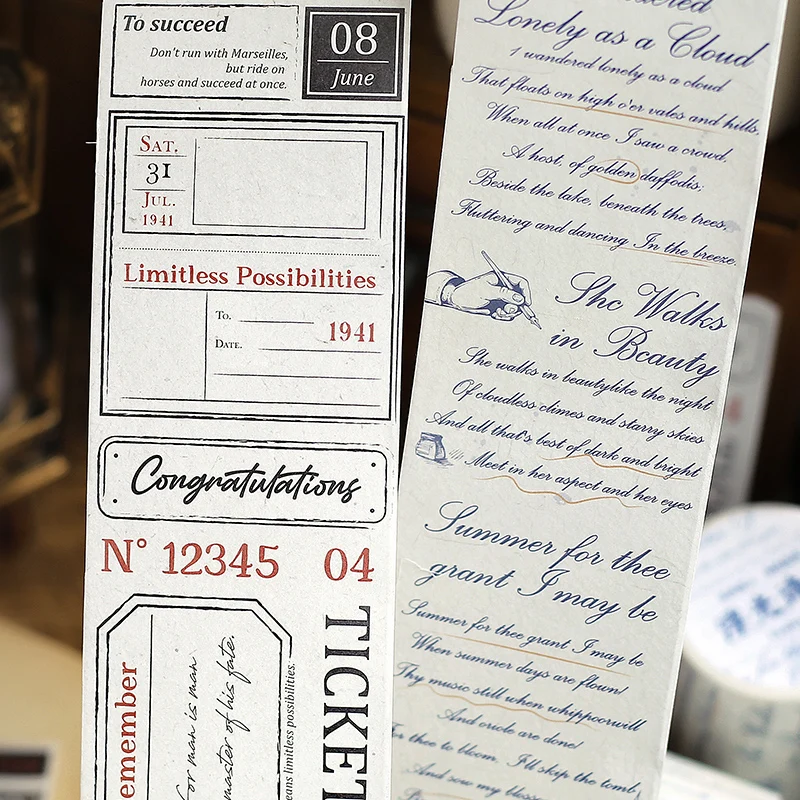 To succeed
Don't run with Marseilles,
but ride on
horses and succeed at once.
08
June
SAT.
31
JUL.
1941
Limitless Possibilities
To.
DATE.
1941
Congratulations
N° 12345 04
TICKET
emember
for man is man
master of his fate.
eans limitless possibilities.
Lonely as a Cloud
I wandered lonely as a cloud
That floats on high o'er vales and hills,
When all at once I saw a crowd,
A host, of golden daffodis;
Beside the lake, beneath the trees,
Fluttering and dancing In the breeze.
She Walks
in Beauty
She walks in beautylike the night
Of cloudless climes and starry skies
And all that's best of dark and bright
Meet in her aspect and her eyes
Summer for thee
grant I may be
Summer for thee grant I may be
When summer days are flown!
Thy music still when whippoorwill
And oriole are done!
For thee to bloom, I'll skip the tomb
And sow my